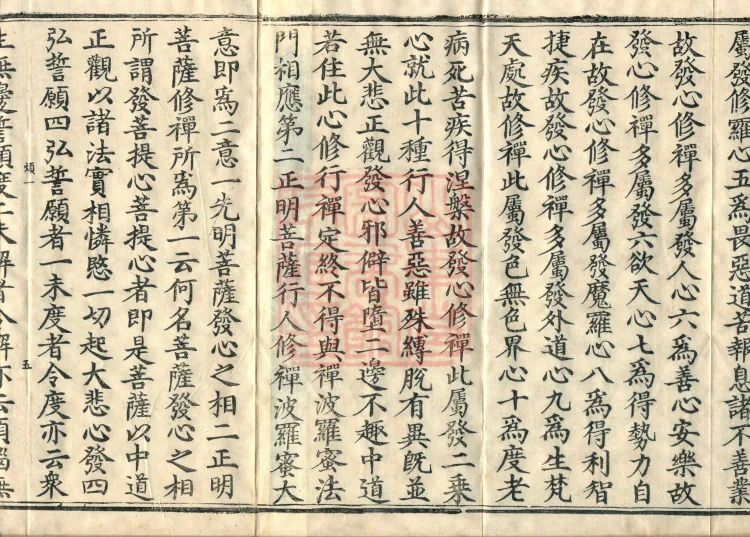 屬發修羅心五為畏惡道苦報息諸不善業
故發心修禪多屬發人心六為善心安樂故
發心修禪多屬發六欲天心七為得勢力自
在故發心修禪多屬發魔羅心八為得利智
捷疾故發心修禪多屬發外道心九為生梵
天處故修禪此屬發色無色界心十為度老
病死苦疾得涅槃故發心修禪此屬發二乗
心就此十種行人善惡雖殊縛脫有異既並
無大悲正觀發心邪僻皆墮二邊不趣中道
若住此心修行禪定終不得與禪波羅蜜法
門相應第二正明菩薩行人修禪波羅蜜大
意即為二意一先明菩薩發心之相二正明
菩薩修禪所為第一云何名菩薩發心之相
所謂發菩提心菩提心者即是菩薩以中道
正觀以諸法實相憐愍一切起大悲心發四
弘誓願四弘誓願者一未度者令度亦云衆
煩一
五
生無邊誓願度二未解者令解亦云煩惱無